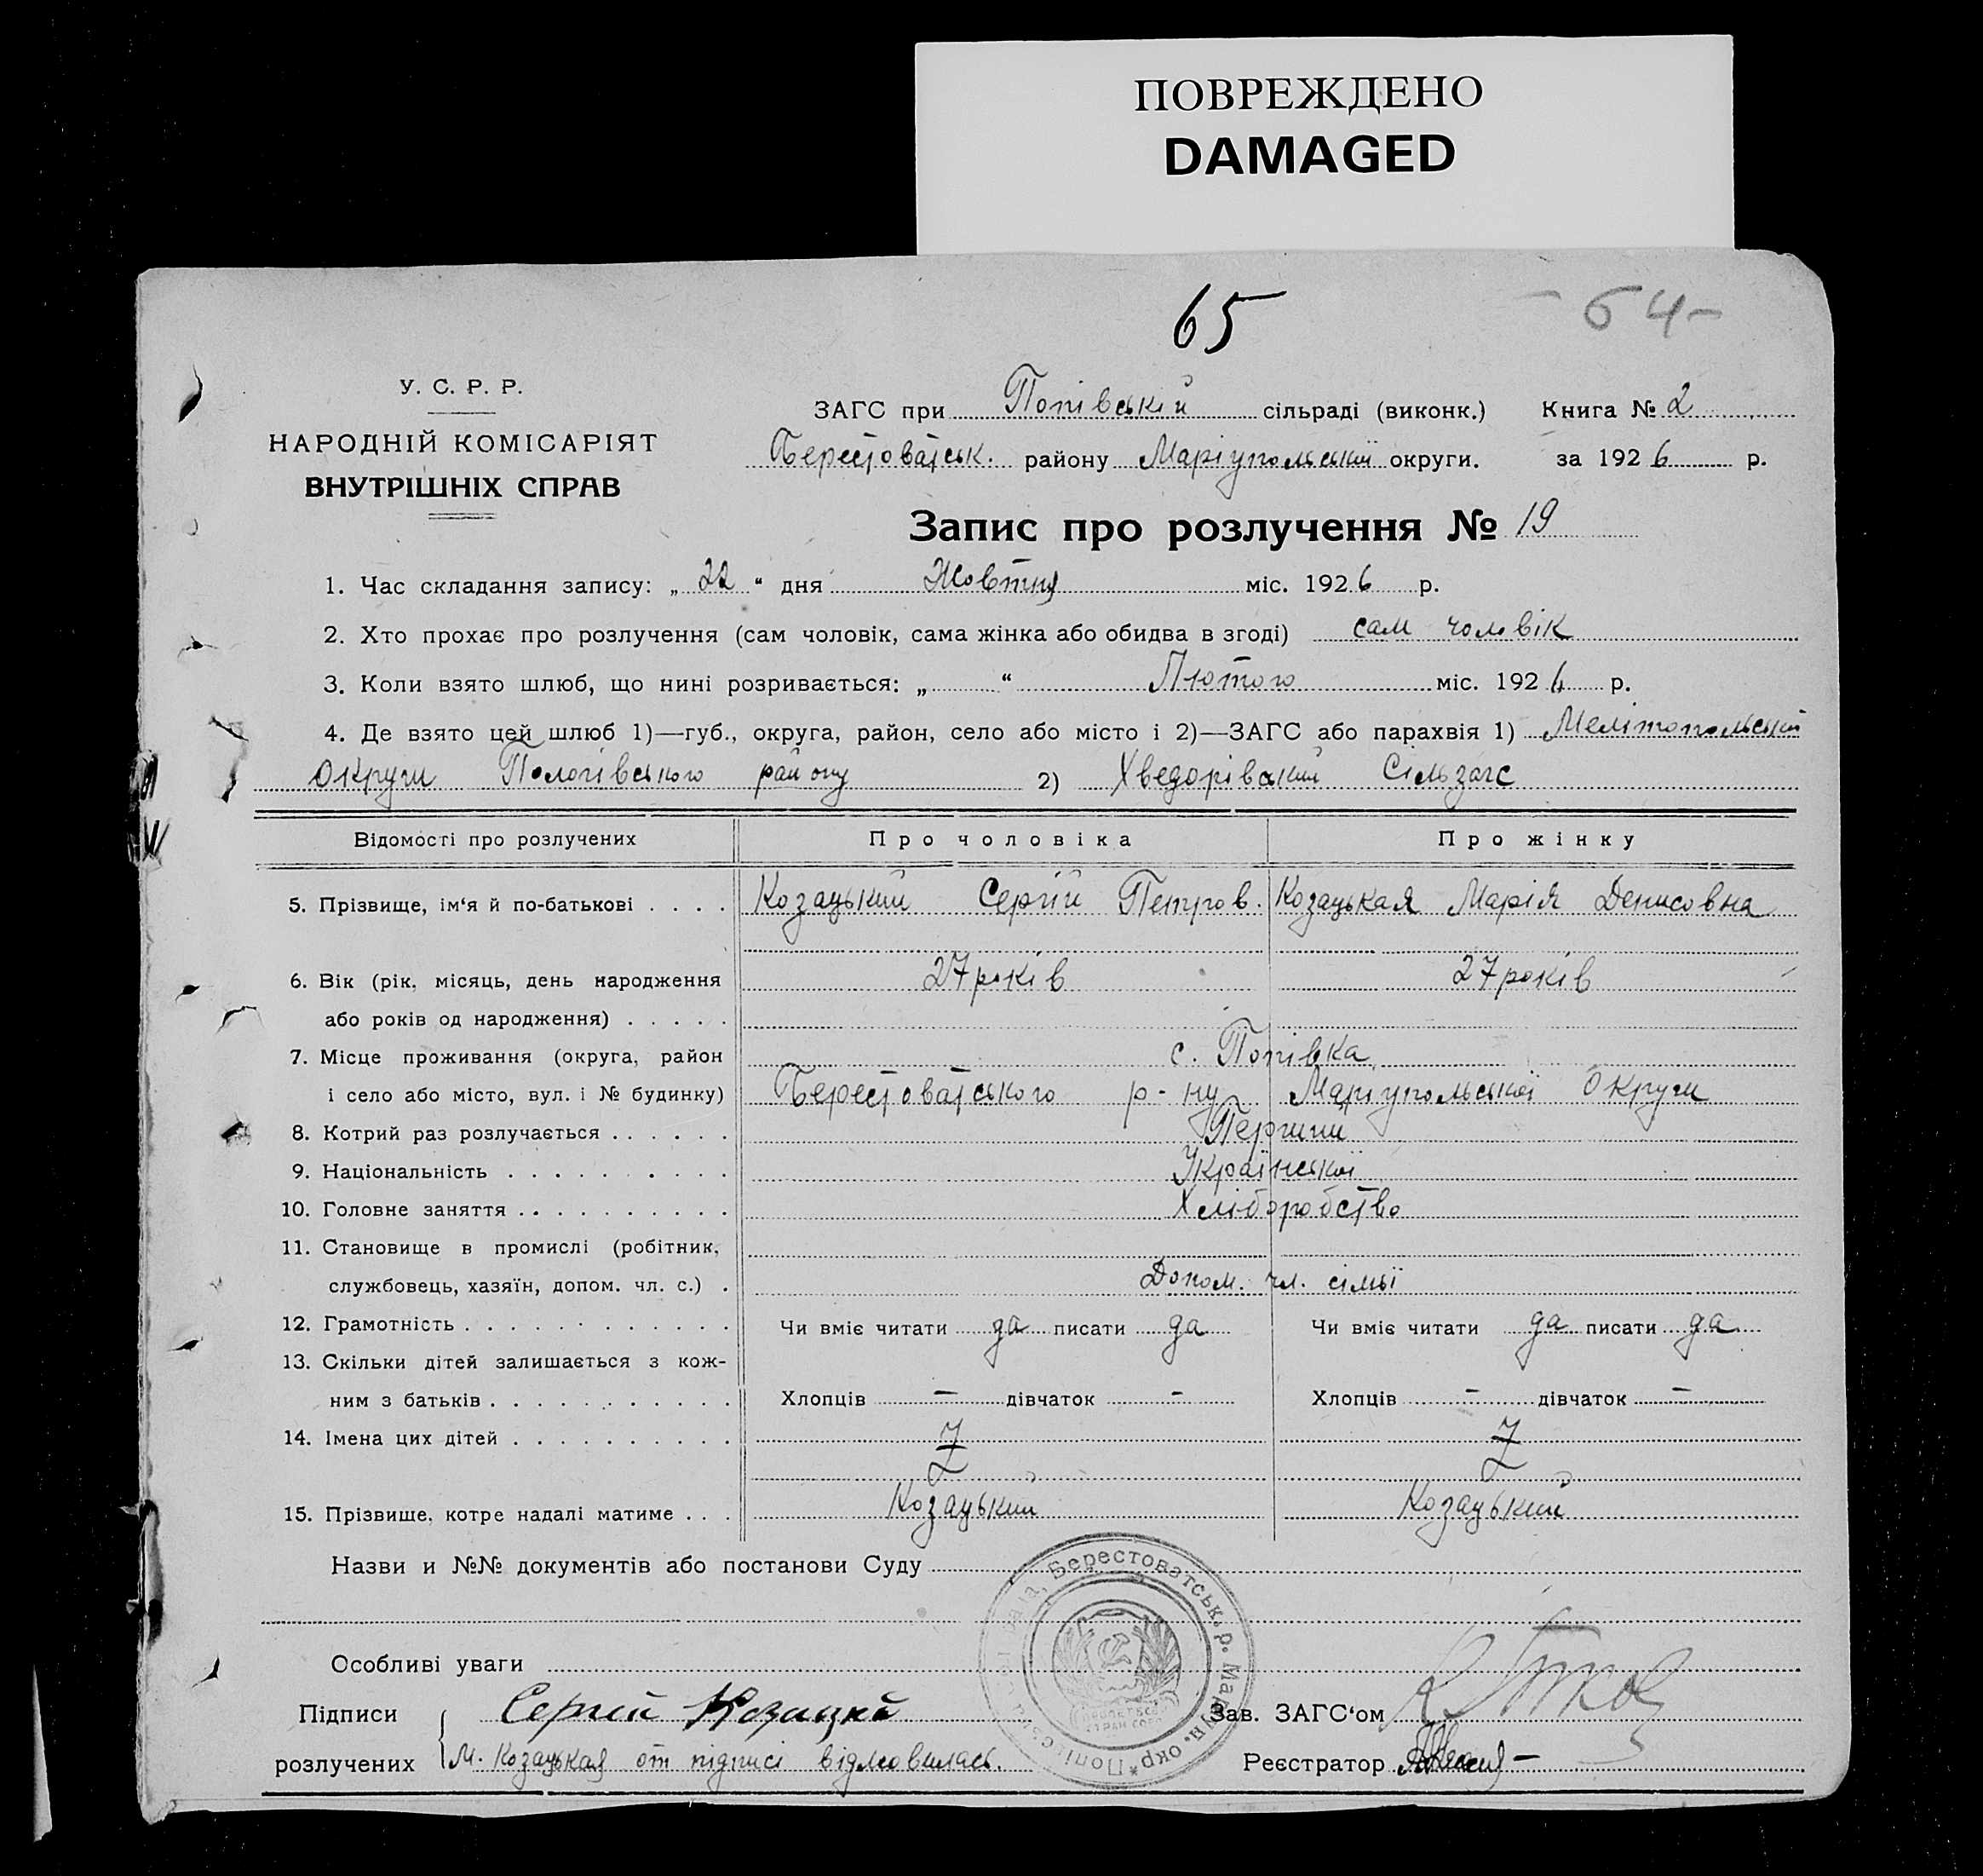 ПОВРЕЖДЕНО
DAMAGED
65
- 64 -
У. С. Р. Р.
НАРОДНІЙ КОМІСАРІЯТ
ВНУТРІШНІХ СПРАВ
ЗАГС при Попівській сільраді (виконк.) Книга № 2
Берестоватськ. району Маріупольської округи. за 1926 р.
Запис про розлучення № 19
1. Час складання запису: „22“ дня Жовтня міс. 1926 р.
2. Хто прохає про розлучення (сам чоловік, сама жінка або обидва в згоді) сам чоловік
3. Коли взято шлюб, що нині розривається: „ “ Лютого міс. 192 р.
4. Де взято цей шлюб 1)—губ., округа, район, село або місто і 2)—ЗАГС або парахвія 1) Мелітопольської
округи Пологівського району 2) Хведорівський Сільзагс
Відомості про розлучених Про чоловіка Про жінку
5. Прізвище, ім‘я й по-батькові . . . . Козацький Сергій Петров. Козацькая Марія Денисовна
6. Вік (рік, місяць, день народження 27 років 27 років
або років од народження) . . . . .
7. Місце проживання (округа, район с. Попівка
і село або місто, вул. і № будинку) Берестоватського р-ну Маріупольської Округи
8. Котрий раз розлучається . . . . . . Перший
9. Національність . . . . . . . . . . Української
10. Головне заняття . . . . . . . . . . Хліборобство
11. Становище в промислі (робітник,
службовець, хазяїн, допом. чл. с.) . Допом. чл. сімьї
12. Грамотність . . . . . . . . . . . . Чи вміє читати да писати да Чи вміє читати да писати да
13. Скільки дітей залишається з кож-
ним з батьків . . . . . . . . . . . Хлопців — дівчаток — Хлопців — дівчаток —
14. Імена цих дітей . . . . . . . . . .
15. Прізвище, котре надалі матиме . . . Козацький Козацький
Назви и №№ документів або постанови Суду
Берестоватськ. р. Маріуп. окр. * Попівськ
Особливі уваги
Підписи Сергій Козацкй Зав. ЗАГС‘ом
розлучених М. Козацькая от підписі відмовилась. Реєстратор